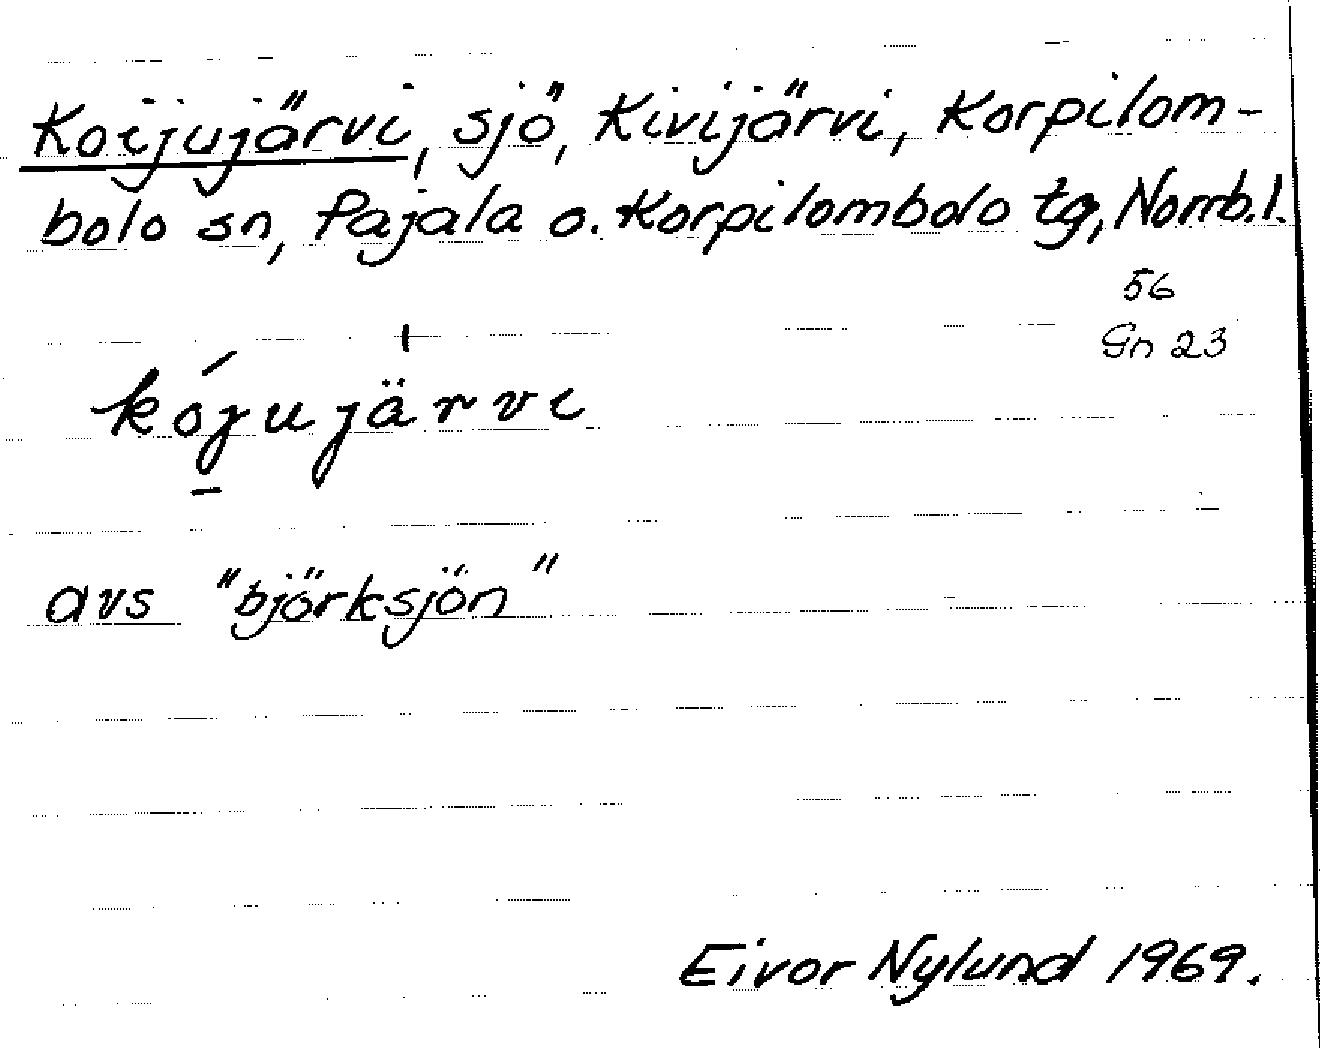 Koijujärvi, sjö, Kivijärvi, Korpilom-
bolo sn, Pajala o. Korpilombolo tg, Norrb. l.
56
Gn 23
kójujärvi
avs "björksjön"
Eivor Nylund 1969.